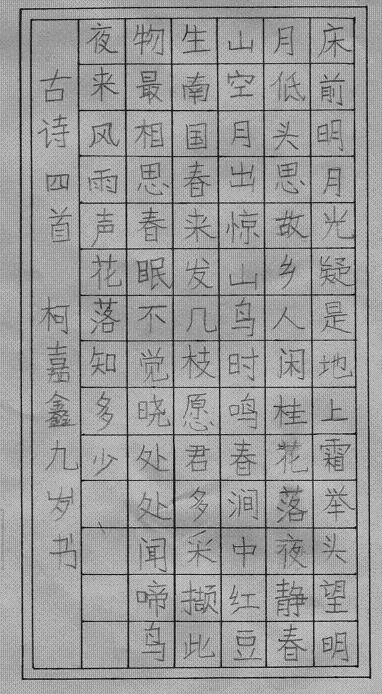 床前明月光疑是地上霜举头望明
月低头思故乡人闲桂花落夜静春
山空月出惊山鸟时鸣春涧中红豆
生南国春来发几枝愿君多采撷此
物最相思春眠不觉晓处处闻啼鸟
夜来风雨声花落知多少
古诗四首 柯嘉鑫九岁书